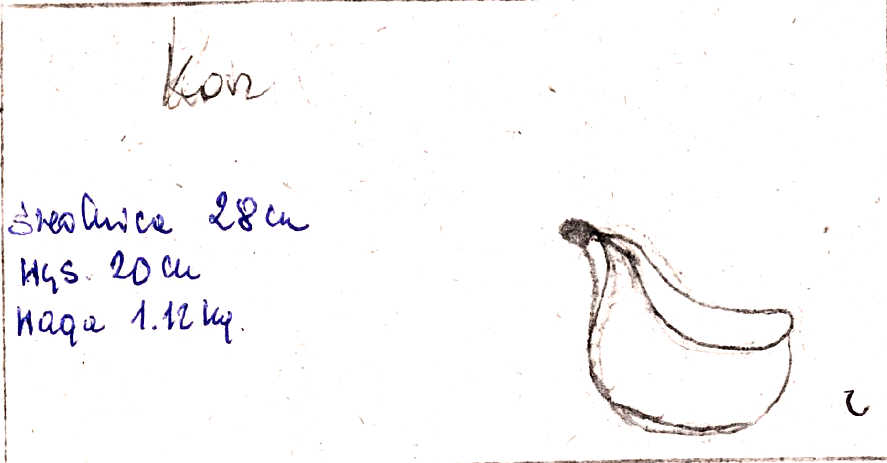 Kosz
średnica 28 cm
Wys. 20 cm
Waga 1.12 kg.
2